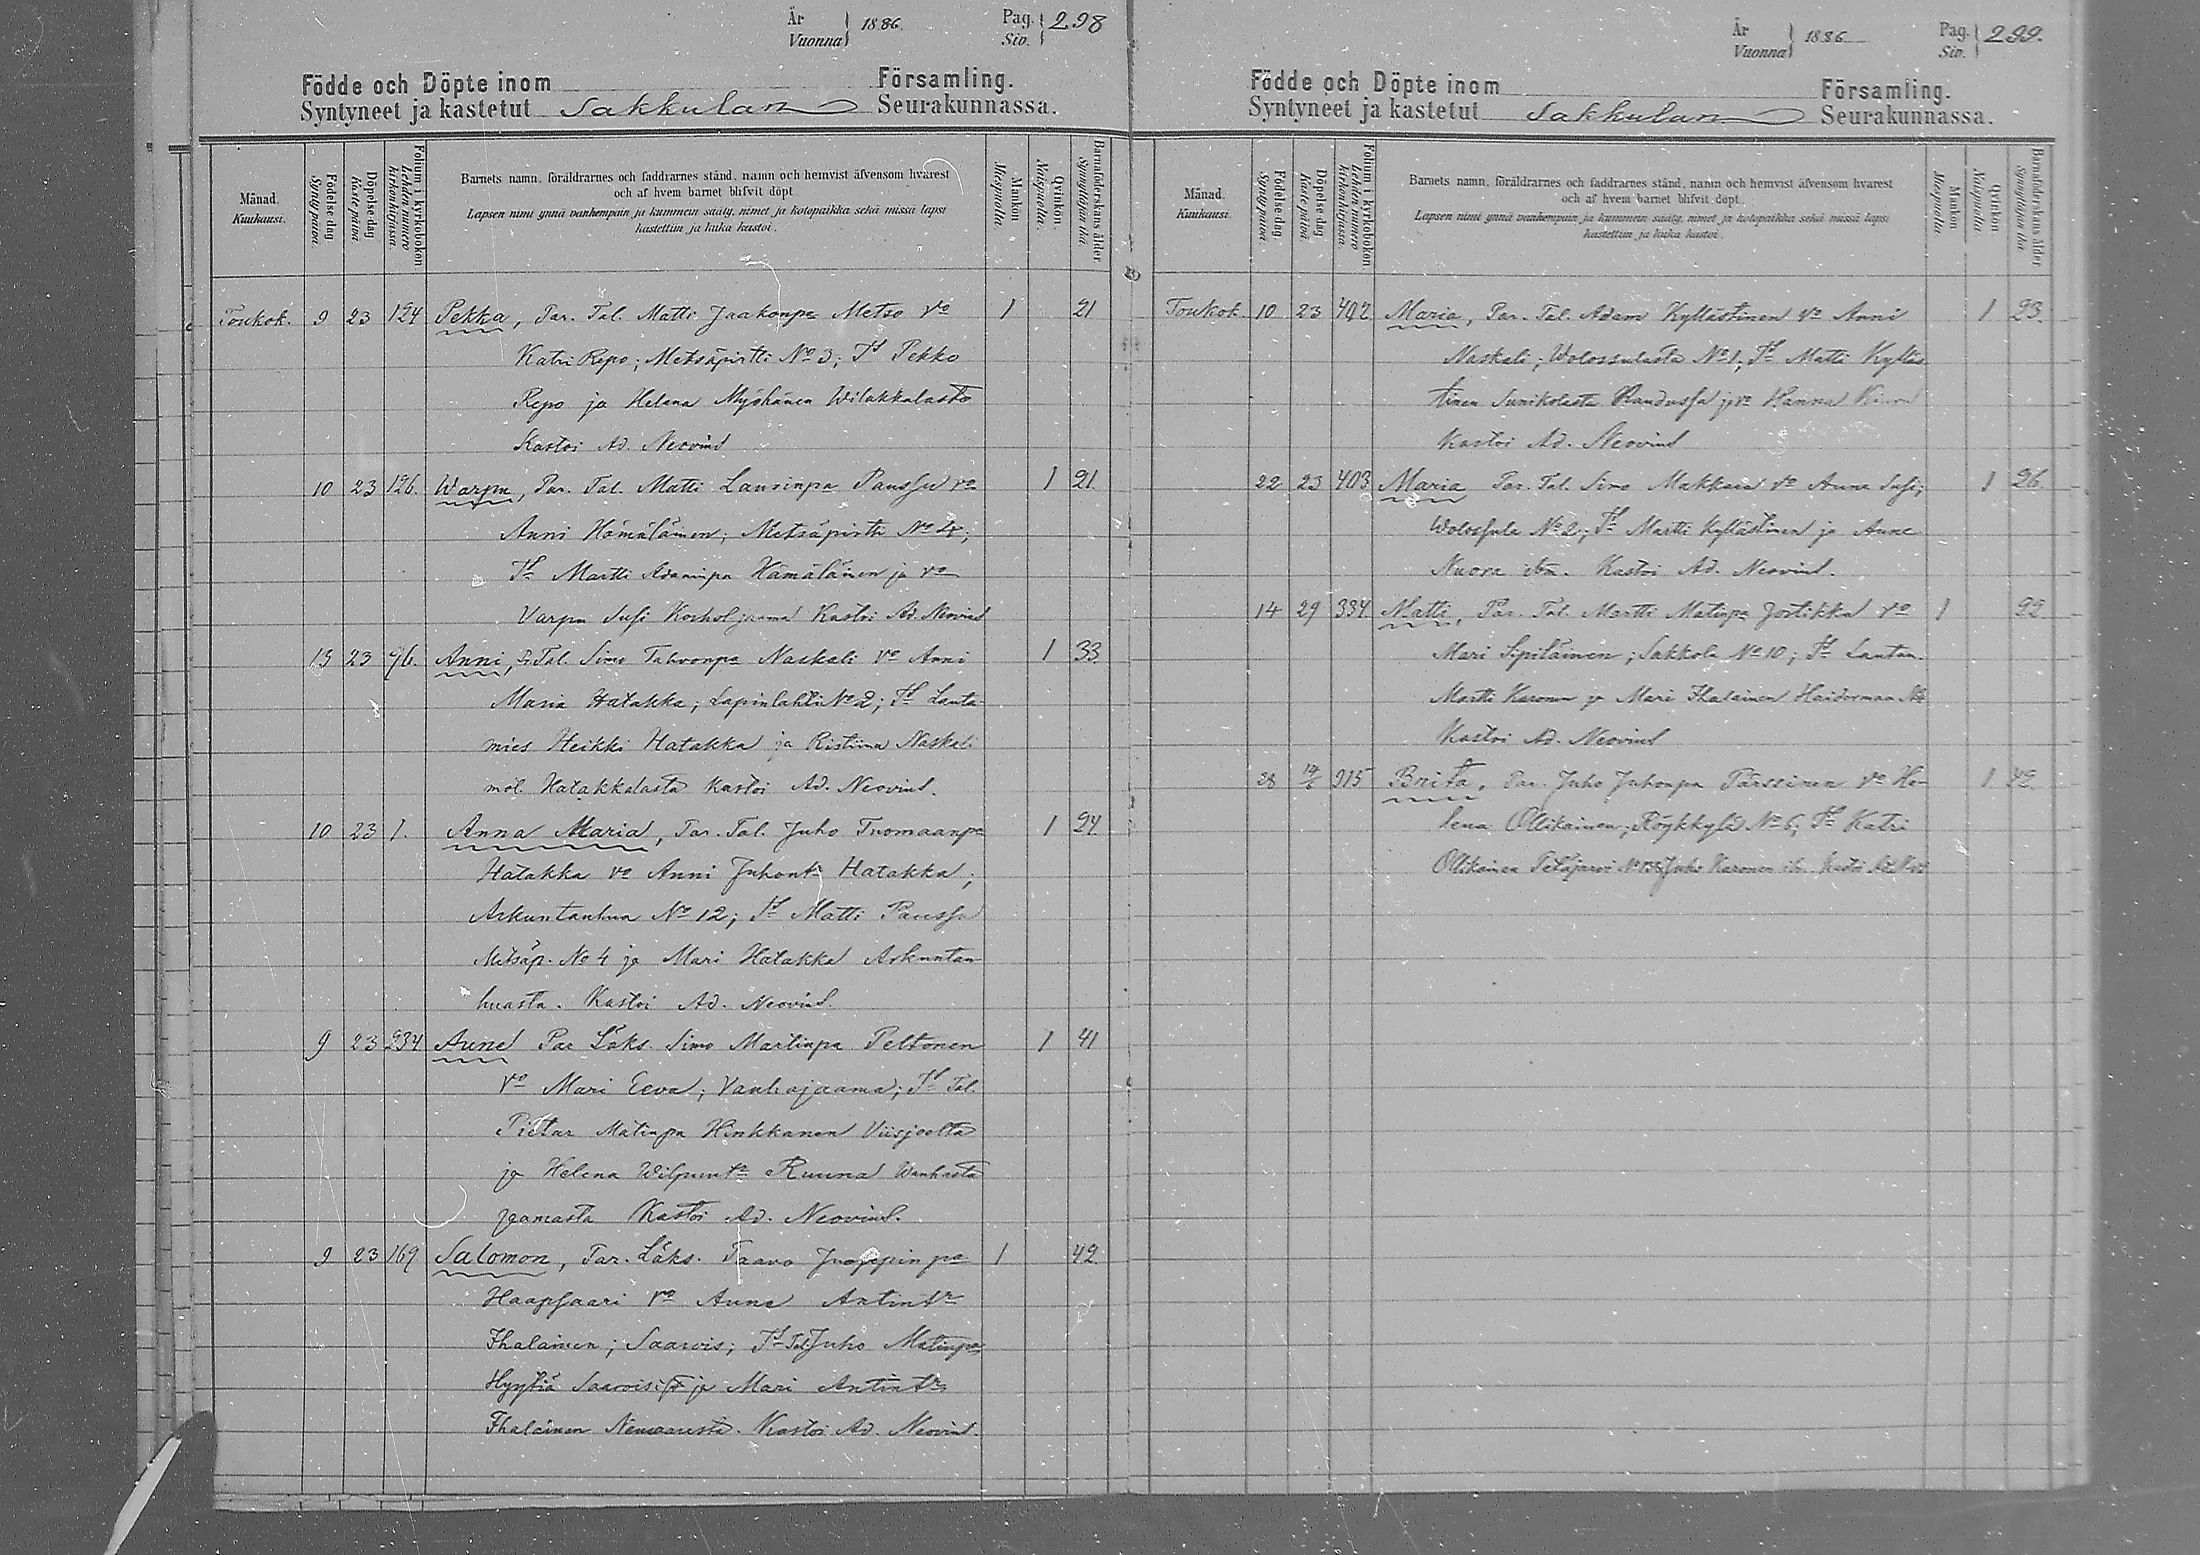 År 1886. Pag. 298
Vuonna Siv.
Födde och Döpte inom Församling.
Syntyneet ja kastetut Sakkulan Seurakunnassa.
Månad. Kuukausi.
Födelsedag Syntypäivä.
Döpelsedag Kastepäivä
Folium i kyrkoboken Lehden numero kirkonkirjassa.
Barnets namn, föräldrarnes och faddrarnes stånd, namn och hemvist äfvensom hvarest
och af hvem barnet blifvit döpt.
Lapsen nimi ynnä vanhempain ja kummein sääty, nimet ja kotopaikka sekä missä lapsi
kastettiin ja kuka kastoi.
Mankön Miespuolta.
Qvinkön. Naispuolta.
Barnaföderskans ålder Synnyttäjän ikä
Toukok. 9 23 124 Pekka, Tal. Matti Jaakonpa Metso Vo 1 21
Katri Repo; Metsäpirtti No 3; Pekko
Repo ja Helena Myöhänen Wilakkalasta
Kastoi Ad. Neovius
10 23 126. Warpu, Tal. Matti Laurinpa Paussu vo 1 21.
Anni Hämäläinen; Metsäpirtti No 4;
Martti Adaminpa Hämäläinen ja vo
Varpu Susi Korholjaama Kastoi Ad. Neovius
13 23 96. Anni, Tal. Simo Tahvonpa Naskali Vo Anni 1 33.
Maria Hatakka; Lapinlahti No 2; Lauta-
mies Heikki Hatakka ja Ristiina Naskali
mol. Hatakkalasta Kastoi Ad. Neovius.
10 23 1. Anna Maria, Tal. Juho Tuomaanpa 1 24.
Hatakka vo Anni Juhont. Hatakka;
Arkuntanhua No 12; Matti Paussu
Metsäp. No 4 ja Mari Hatakka Arkuntan
huasta. Kastoi Ad. Neovius.
9 23 234 Aune Par Laks. Simo Martinpa Peltonen 1 41
Vo Mari Eeva; Vanhajaama; Tal.
Pietar Matinpa Hinkkanen Viisjoelta
ja Helena Ruuna Wanhasta
jaamasta Kastoi Ad. Neovius.
9 23 169 Salomon, Laks. Taavo pa 1 42.
Haapsaari Vo Anna Antintr
Ihalainen; Saarois; Tal Juho Matinpa
Hyytiä ja Mari Antintr
Ihalainen Kastoi Ad. Neovius.
År 1886. Pag. 299.
Vuonna Siv.
Födde och Döpte inom Församling.
Syntyneet ja kastetut Sakkulan Seurakunnassa.
Månad. Kuukausi.
Födelsedag Syntypäivä.
Döpelsedag Kastepäivä
Folium i kyrkoboken Lehden numero kirkonkirjassa.
Barnets namn, föräldrarnes och faddrarnes stånd, namn och hemvist äfvensom hvarest
och af hvem barnet blifvit döpt.
Lapsen nimi ynnä vanhempain ja kummein sääty, nimet ja kotopaikka sekä missä lapsi
kastettiin ja kuka kastoi.
Mankön Miespuolta
Qvinkön Naispuolta.
Barnaföderskans ålder Synnyttäjän ikä
Toukok 10 23 402 Maria, Par. Tal. Adam Kyllästinen Vo Anni 1 23.
Naskali; Wolossulasta No 1; Matti Kylläs
tinen Sunikolasta Raudussa ja vo Hanna
Kastoi Ad. Neovius
22 23 403 Maria Par. Tal. Simo Makkara vo Anna Susi; 1 26.
Wolossula No 2; Martti Kyllästinen ja Anne
Nuora ibm. Kastoi Ad. Neovius.
14 29 334. Matti, Par. Tal. Martti Matinpa Jortikka vo 1 22.
Mari Sipiläinen; Sakkola No 10; Lautam.
Martti Karonen ja Mari Ihalainen Haidorman
Kastoi Ad. Neovius
28 315 Brita, Juho Juhonpa Pärssinen Vo He- 1 42.
lena Ollikainen; Röykkylä No 6; Katri
Ollikainen Juho Karonen Kastoi